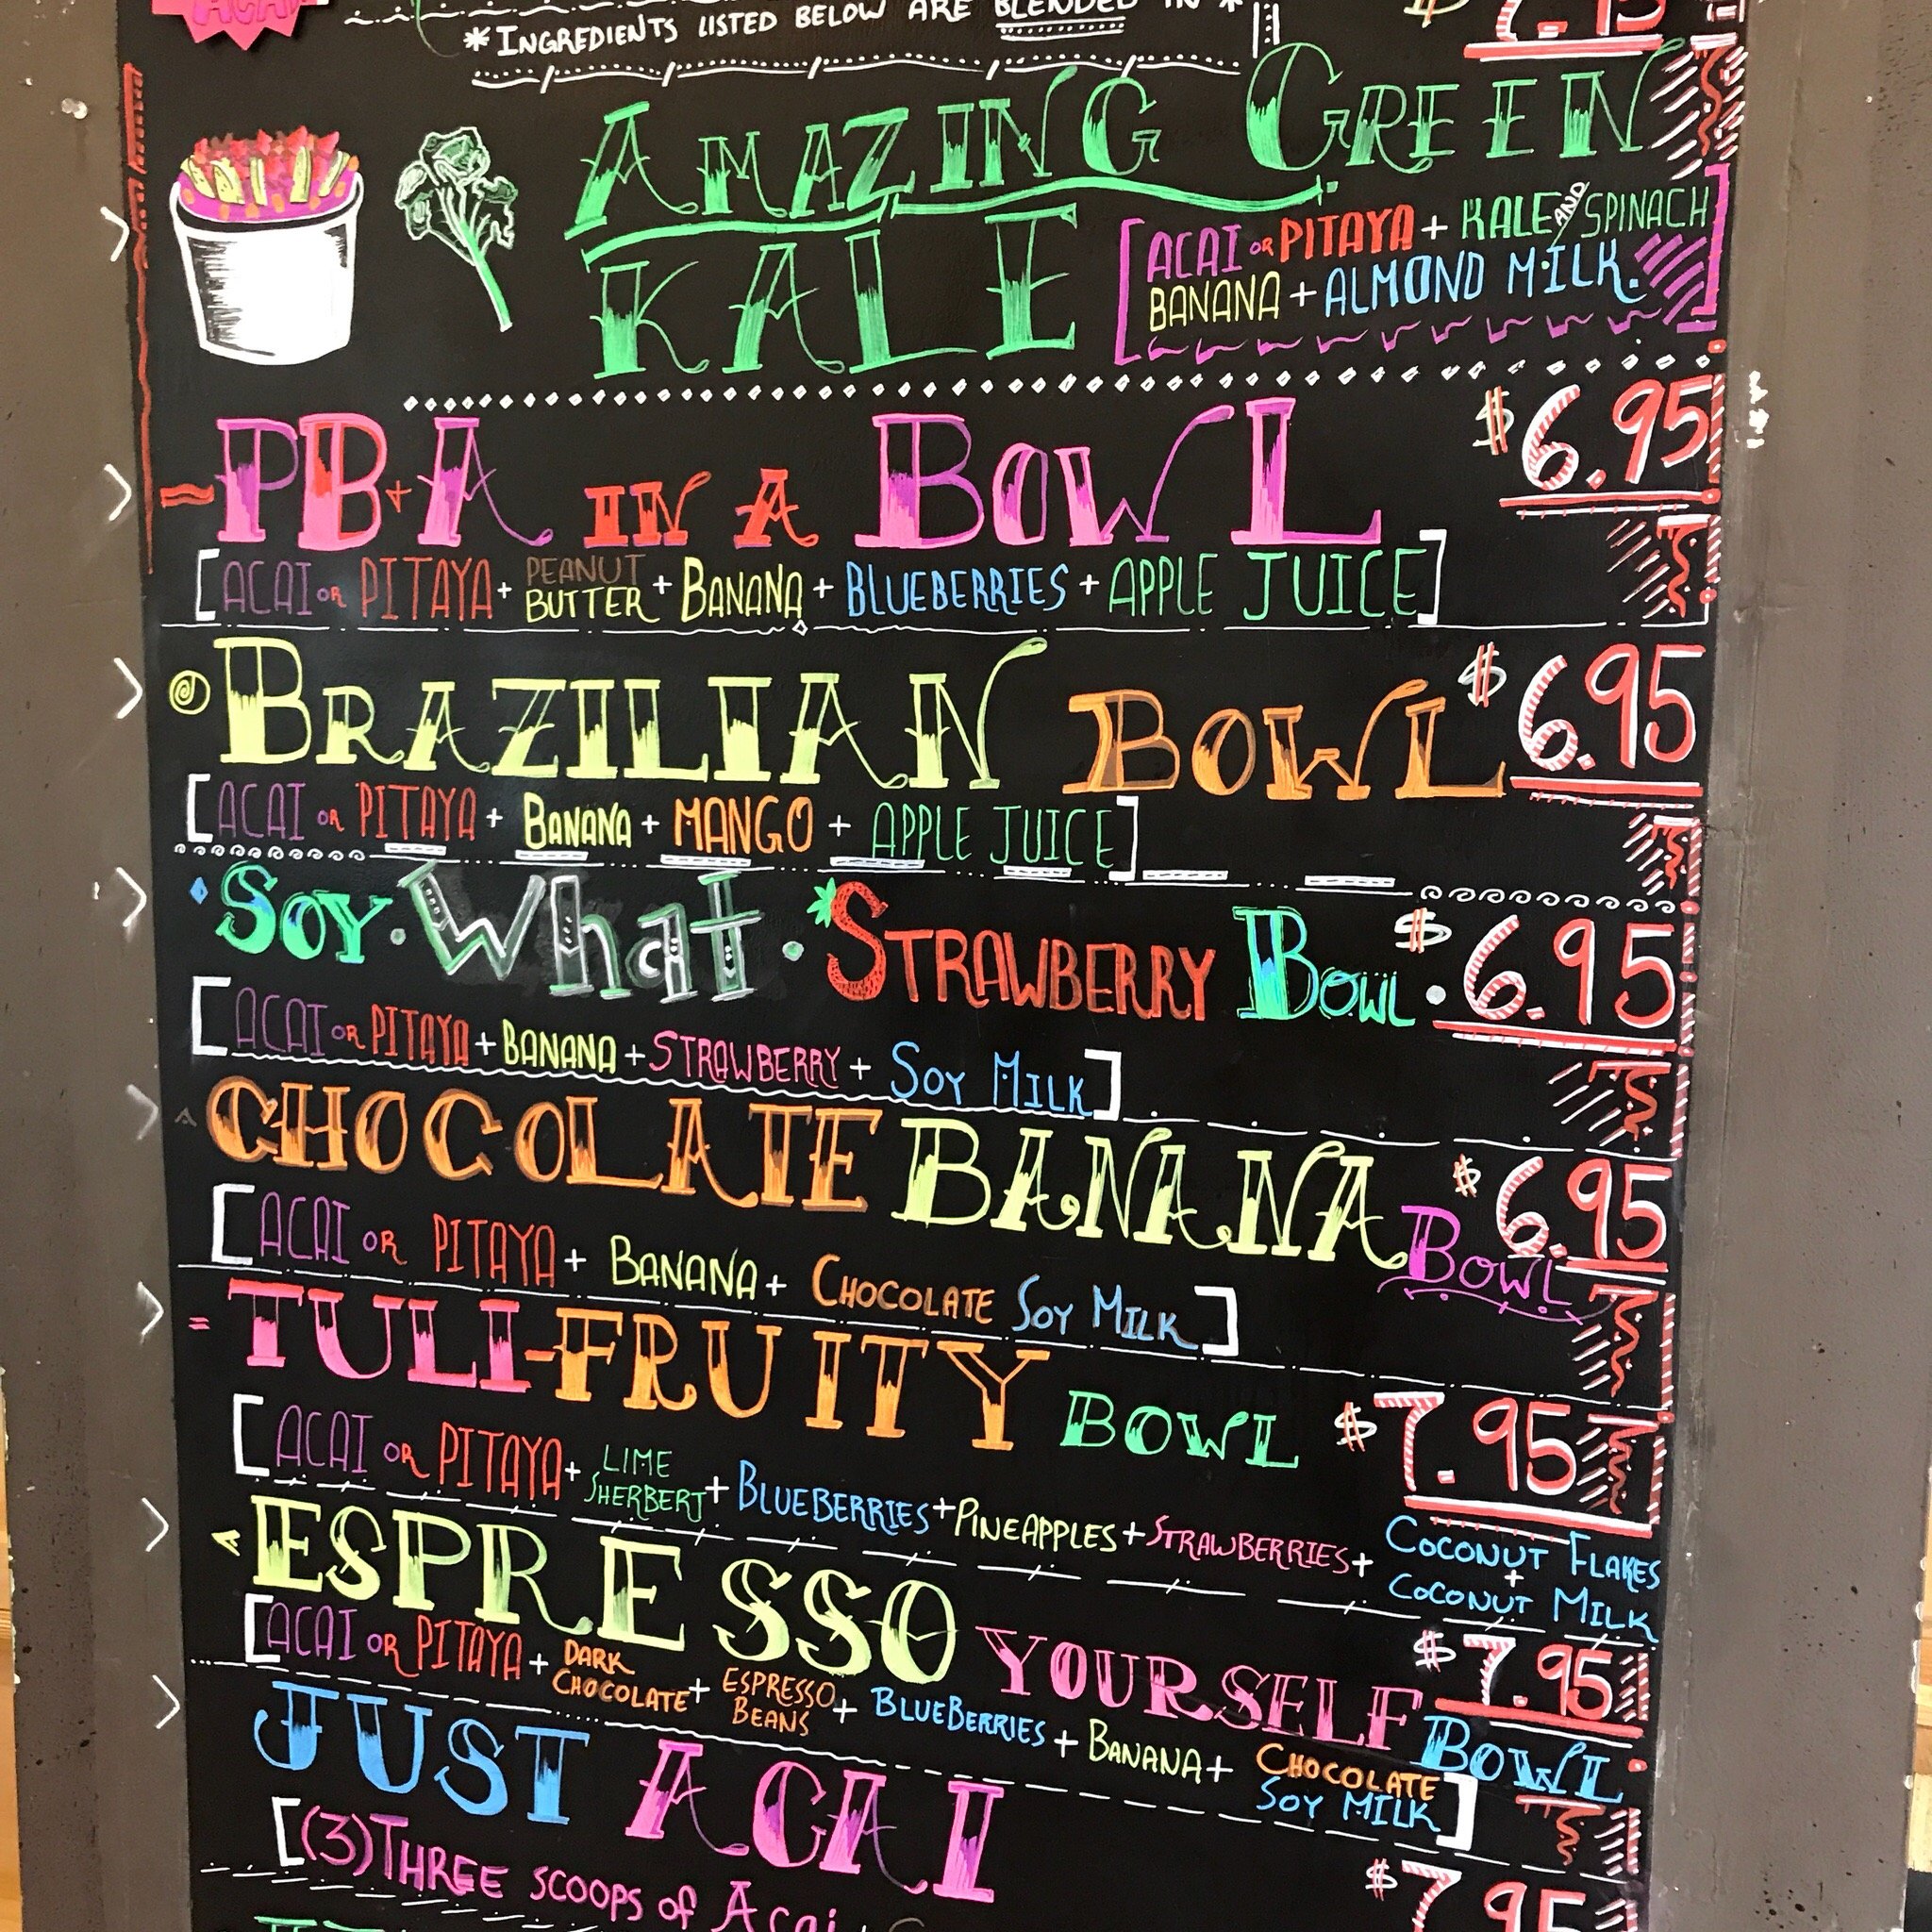 ACAI
*INGREDIENTS LISTED BELOW ARE BLENDED IN *
$7.95
AMAZING GREEN
KALE
[ACAI OR PITAYA + KALE AND SPINACH
BANANA + ALMOND MILK.]
PB+A IN A BOWL
$6.95
[ACAI OR PITAYA + PEANUT BUTTER + BANANA + BLUEBERRIES + APPLE JUICE]
BRAZILIAN BOWL $6.95
[ACAI OR PITAYA + BANANA + MANGO + APPLE JUICE]
SOY • What • STRAWBERRY BOWL • $6.95
[ACAI OR PITAYA + BANANA + STRAWBERRY + SOY MILK]
CHOCOLATE BANANA BOWL $6.95
[ACAI OR PITAYA + BANANA + CHOCOLATE SOY MILK]
TULI-FRUITY BOWL $7.95
[ACAI OR PITAYA + LIME SHERBERT + BLUEBERRIES + PINEAPPLES + STRAWBERRIES + COCONUT FLAKES + COCONUT MILK
ESPRESSO YOURSELF BOWL $7.95
[ACAI OR PITAYA + DARK CHOCOLATE + ESPRESSO BEANS + BLUEBERRIES + BANANA + CHOCOLATE SOY MILK]
JUST ACAI
$7.95
[(3) THREE SCOOPS of Acai